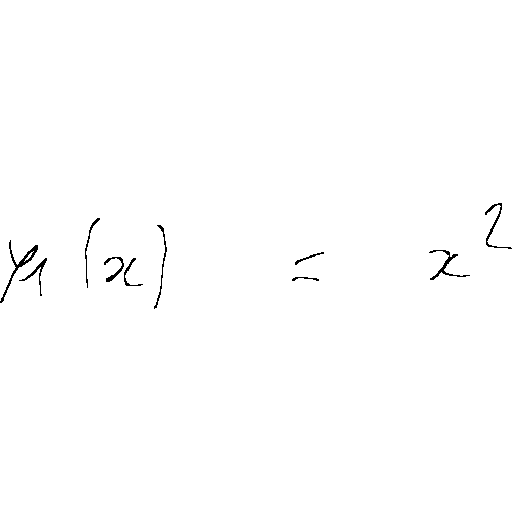 y₁(x) = x²